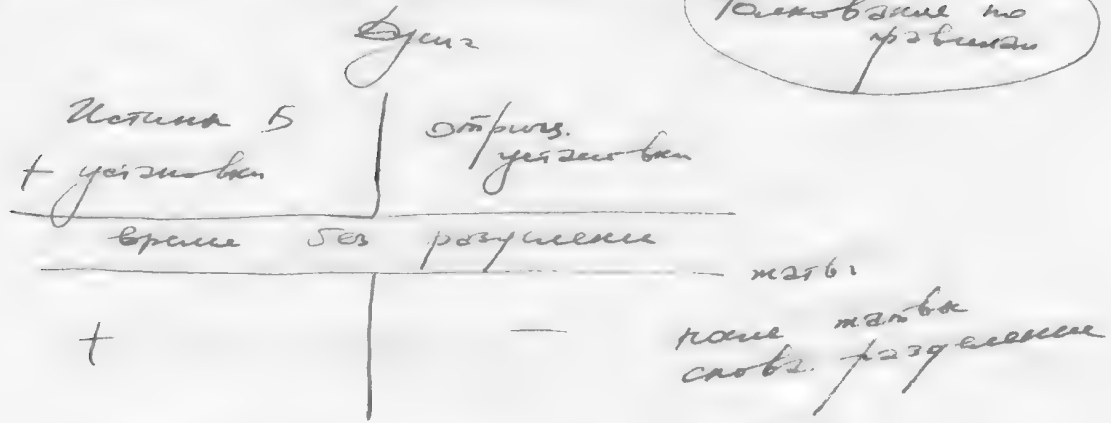 Толкование по
правилам
Душа
Истина Б
+ установки
отриц.
установки
время без разделения
жатвы
+
—
после жатвы
снова разделение